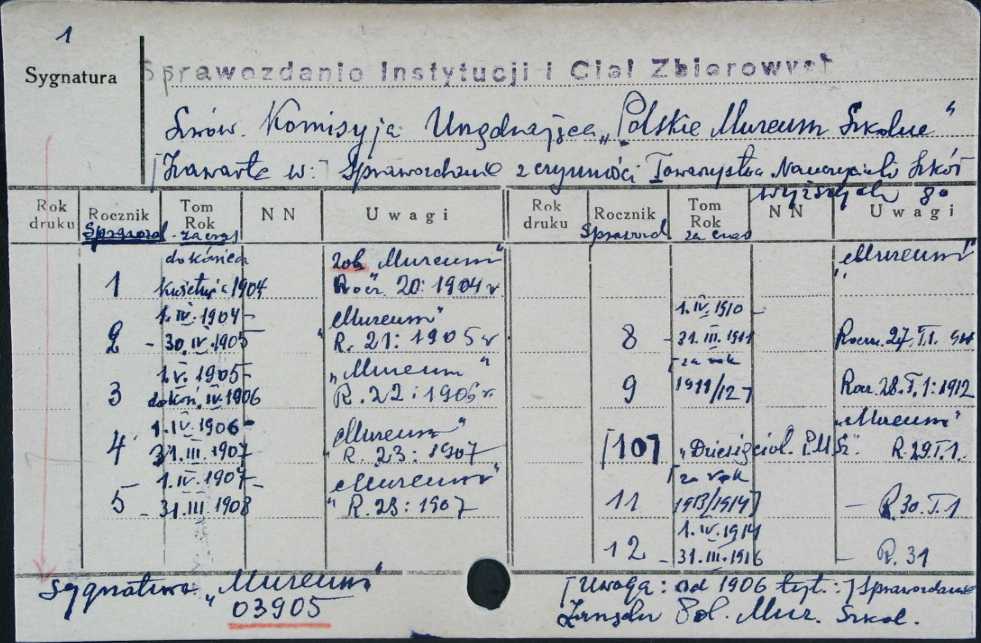 1
Sygnatura
Sprawozdanie Instytucji i Ciał Zbiorowych
Lwów. Komisyja Urządzająca „Polskie Muzeum Szkolne"
[Zawarte w:] Sprawozdanie z czynności Towarzystwa Nauczycieli Szkół
wyższych
Rok druku Rocznik Tom Rok N N Uwagi Rok druku Rocznik Tom Rok N N Uwagi
Sprawozd. za czas Sprawozd. za czas
do końca zob. „Muzeum" „Muzeum"
1 kwietnia 1904 Rocz. 20: 1904 r
1.IV.1904 - „Muzeum" 1.IV.1910 -
2 - 30.IV.1905 R. 21: 1905 r 8 - 31.III.1911 Roczn. 27. T.1.
1.V.1905 - „Muzeum" [za rok
3 dokoń. IV.1906 R. 22: 1906 r. 9 1911/12] Rocz. 28. T.1: 1912
1.IV.1906 - „Muzeum" „Muzeum"
4 31.III.1907 R. 23: 1907 [10] „Dziesięciol. P.M.Sz." R. 29 T.1.
1.IV.1907 - „Muzeum" [za rok
5 - 31.III.1908 R. 23: 1907 11 1913/1914] — R. 30. T.1
1.IV.1914
12 - 31.III.1916 - R. 31
Sygnatura „Muzeum" [Uwaga: od 1906 tyt.:] Sprawozdanie
03905 Zarządu Pol. Muz. Szkol.